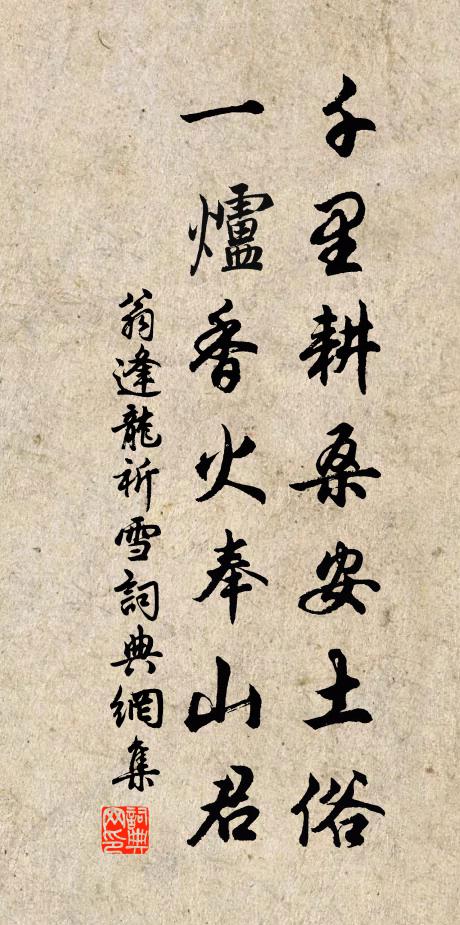 千里耕桑安土俗
一爐香火奉山君
翁逢龍祈雪詞典網集
詞典網印